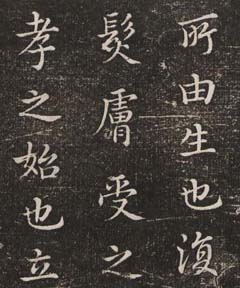 所由生也復
髮膚受之
孝之始也立